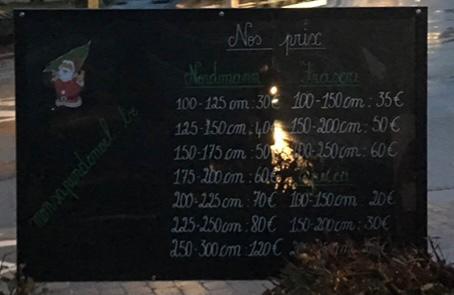 Nos prix
Nordmann
100-125 cm : 30€
125-150 cm : 40€
150-175 cm : 50
175-200 cm : 60€
200-225 cm : 70€
225-250 cm : 80€
250-300 cm : 120€
Fraseri
100-150 cm : 35€
150-200 cm : 50€
200-250 cm : 60€
100-150 cm : 20€
150-200 cm : 30€